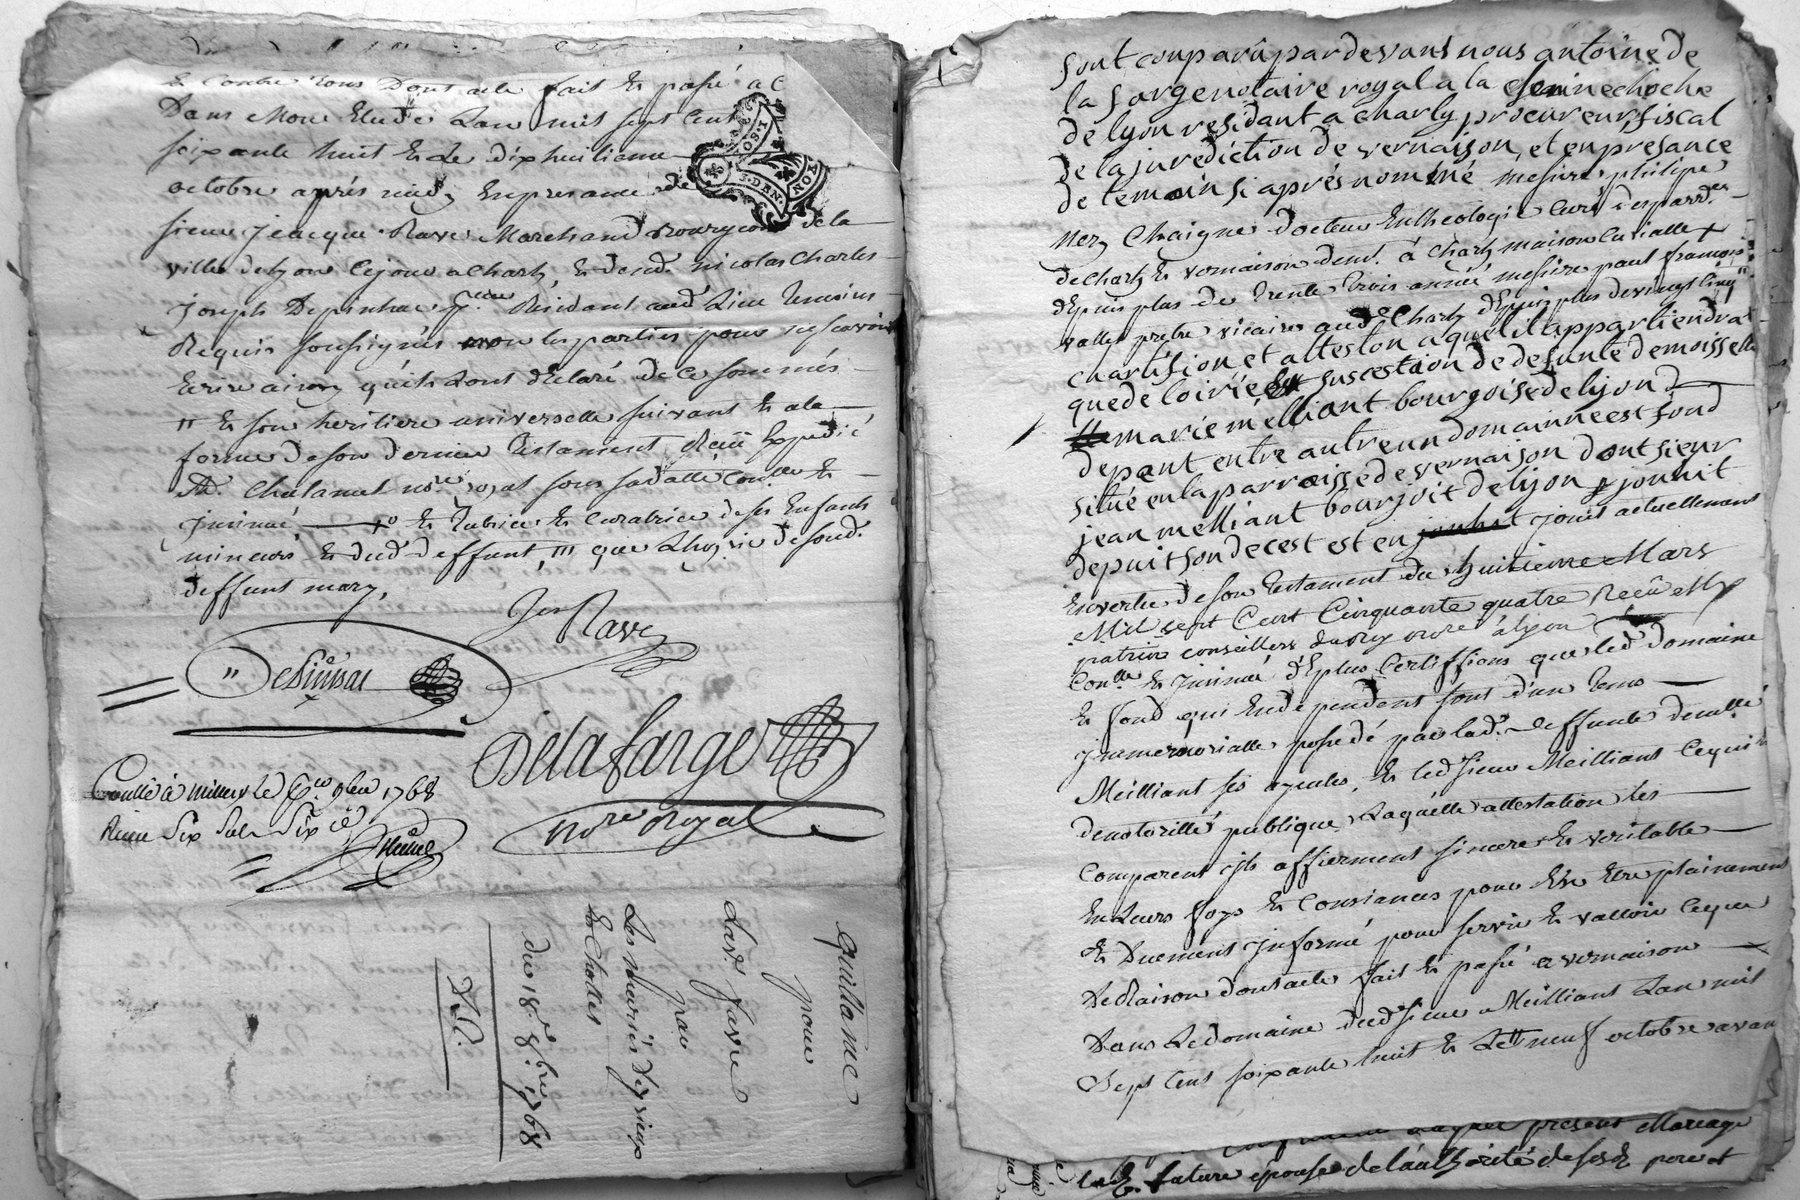 et contre tous Dont acte fait et passé a C
Dans Mon Etude Lan mil sept Cent
soixante huit et Le Dixhuitieme
octobre aprés midy Enpresance de
sieur Jeacque Rave Marchand Bourgeois de la
ville delyon Cejour a Charly et de sr. nicolas Charles
Joseph Depinhac Résidant aud. Lieu Temoins
Requis soussignés non les parties pour ne scavoir
Ecrire ainsy qu'ils Lont déclaré de Ce sommés
" et son heritiere universelle suivant et a la
forme deson dernier Testament Recu Expedié
Me. Chalamel nore. royal sous sa datte Conllé. et
Jnsinué et Tutrice et Curatrice de ses Enfants
mineurs et dud. deffunt, "' que dud.
deffunt mary,
J. ON
G. DEN.
YON
Jes Rave
Delafarge
nore royal
Conllé à millery le 9bre 1768
Reçu six sols six
quittance
pour
Lad. favre
par
Les mariés
et Chollet
du 18e. 8bre. 1768
sont conparû par devans nous antoine de
la farge notaire royal a la
de lyon residant a charly, procureur fiscal
de la jurediction de vernaison, et en presance
de temoin si aprés nommé mesire philipe
Mery Chaigne docteur En theologie Curé desparrses
de Charly et vernaison demt. à Charly maison Curialle
depuis plus de trente trois année mesire paul francois
vallet prêtre vicaire aud. Charly depuis plus de vingt cinq
chartifion et atteston a quel il appartiendra
que de loirie et sucestion de defunte demoisselle
marie mélliant bourgoise de lyon
depant entre autre un domainne est fond
sitüé en la parroisse de vernaison dont sieur
jean melliant bourjoit de lyon jouhit
depuit son decest est en jouhit jouit actuellemant
En vertu de son testament du huitieme Mars
Mil sept Cent Cinquante quatre Recû Me
patrin conseillers du Roy nore à lyon
Conllé et Jnsinué d'Eplus Certiffions que led. domaine
et fond qui En dependent sont d'un tems
Jmmemorialle possedé par lad. deffunte demlle
Meilliant ses ayeules, et led. sieur Meilliant Cequi
denotorieté publique Laquelle attestation les
Comparent ils affierment sincere et veritable
En Leurs foys et Consiances pour En Etre plainement
et Duement Jnformé pour servir et valloir Ceque
De Raison dont acte fait et passé a vernaison
Dans Le domaine dud. sieur Meilliant Lan mil
Sept Cens soixante huit et Le neuf octobre avan
present Mariage
future épouse de l'authorité de ses pere et